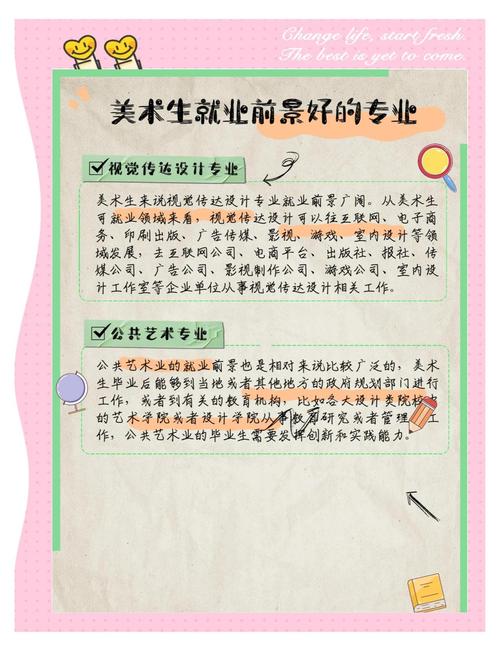 Change life, start fresh.
The best is yet to come.
美术生就业前景好的专业
视觉传达设计专业
美术生来说视觉传达设计专业就业前景广阔。从美术生
可就业领域来看，视觉传达设计可以往互联网、电子商
务、印刷出版、广告传媒、影视、游戏、室内设计等领
域发展，去互联网公司、电商平台、出版社、报社、传
媒公司、广告公司、影视制作公司、游戏公司、室内设
计工作室等企业单位从事视觉传达设计相关工作。
公共艺术专业
公共艺术业的就业前景也是相对来说比较广泛的，美术
生毕业后能够到当地或者其他地方的政府规划部门进行
工作，或者到有关的教育机构，比如各大设计类院校中
的艺术学院或者设计学院从事教育研究或者管理工
作，公共艺术业的毕业生需要发挥创新和实践能力。